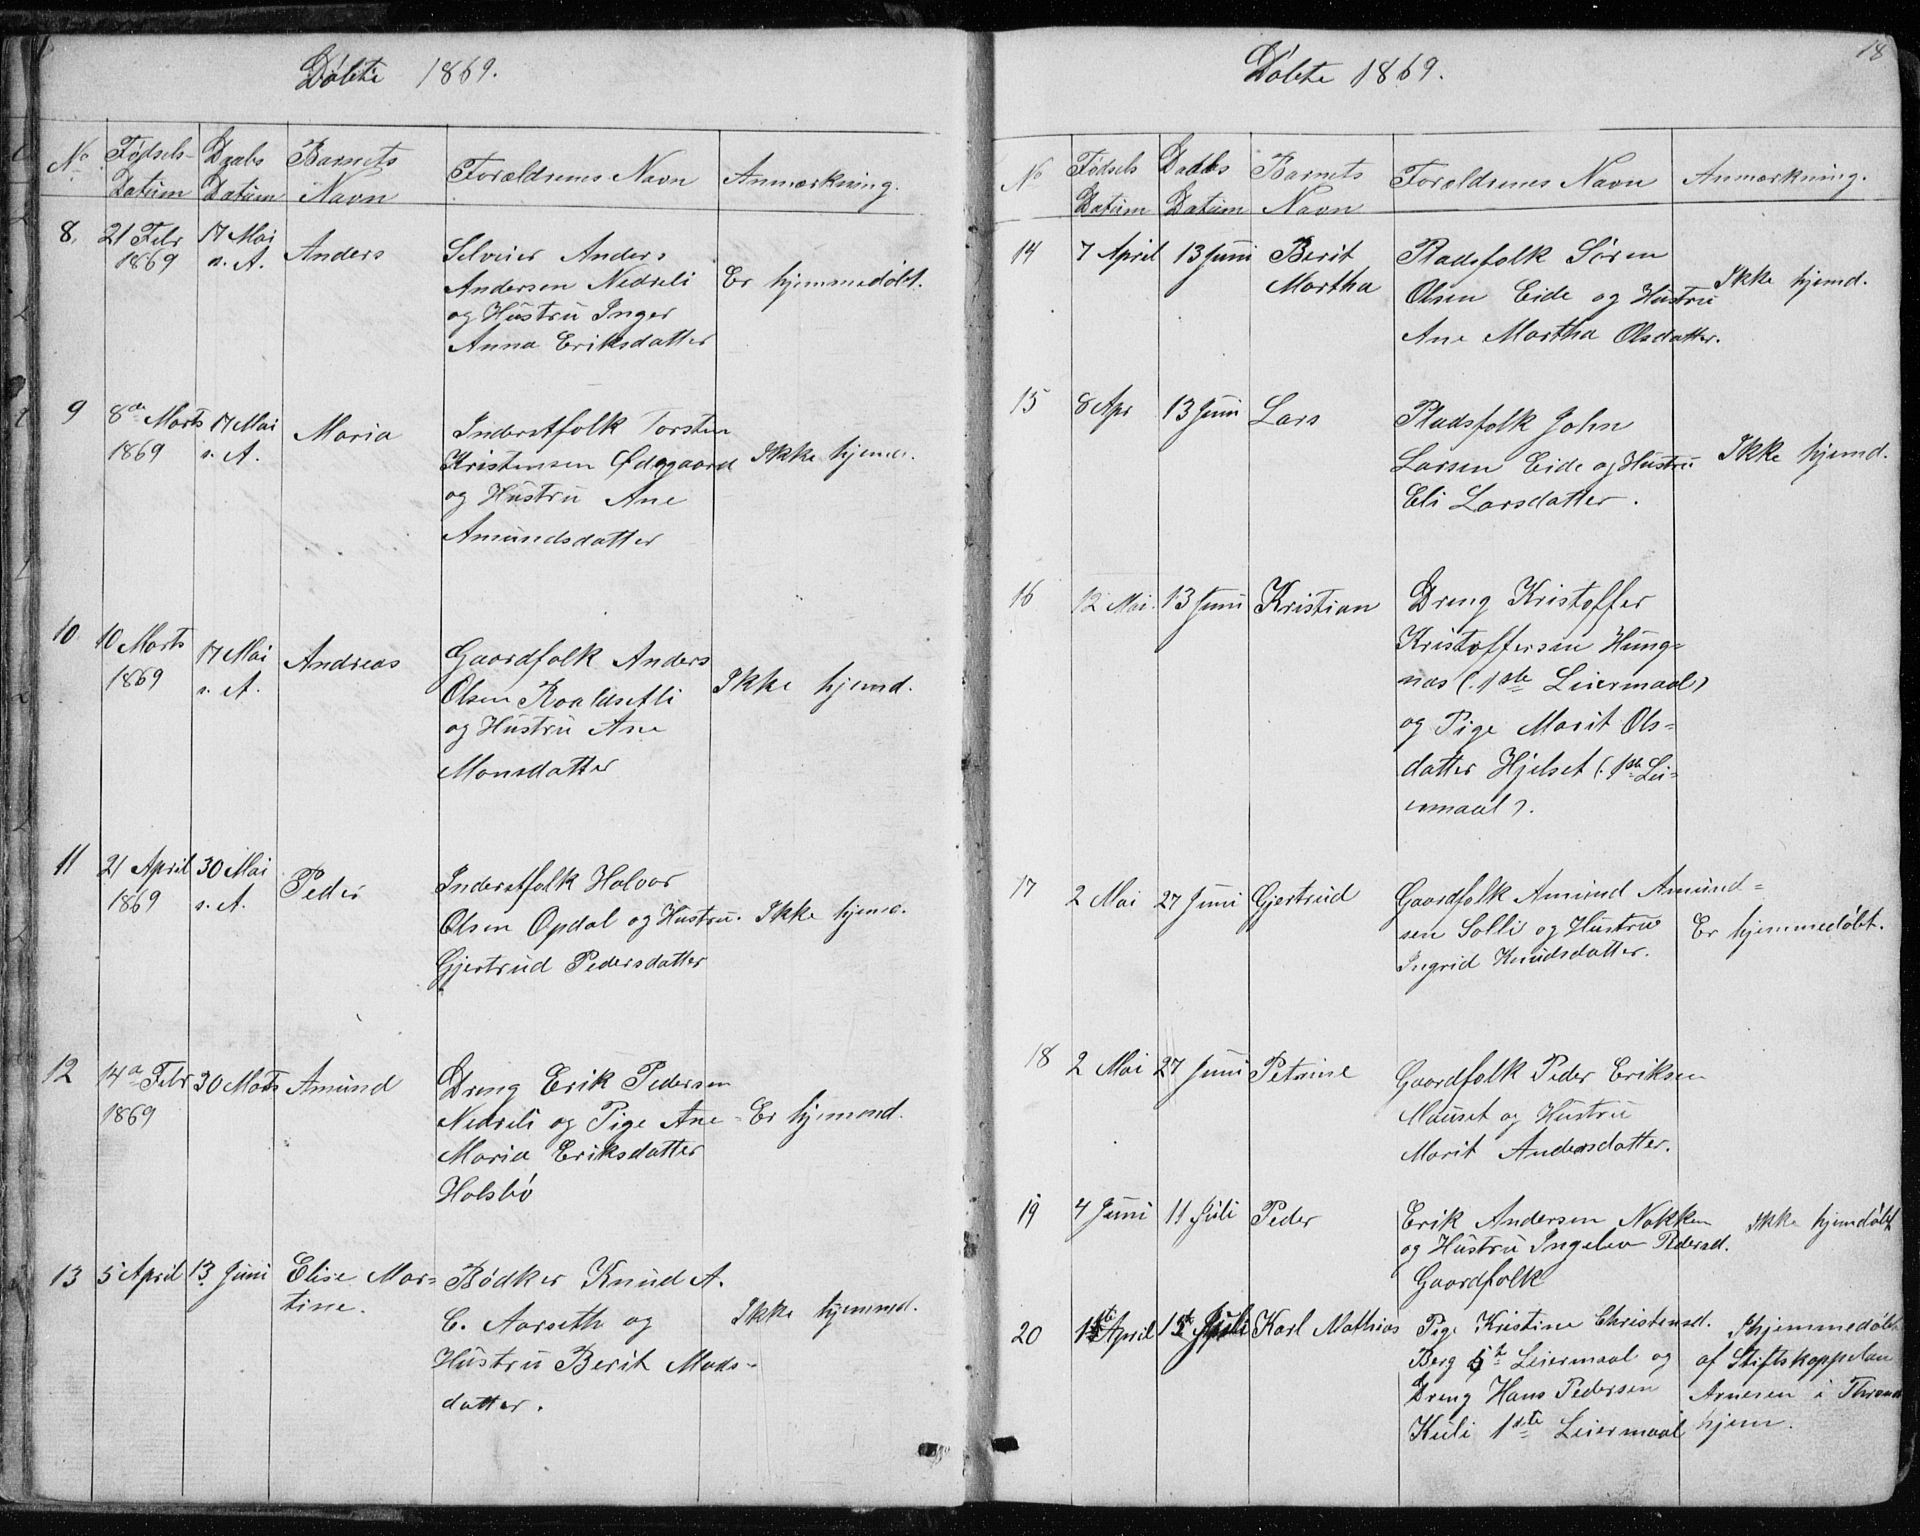 Døbte 1869.
No. Fødsels- Datum Daabs Datum Barnets Navn Forældrenes Navn Anmærkning.
8. 21 Febr 17 Mai Anders Selveier Anders
1869 s. A. Andersen Nedreli Er hjemmedøbt.
og Hustru Inger
Anna Eriksdatter
9 8de Marts 17 Mai Maria Inderstfolk Torsten
1869 s. A. Kristensen Ødegaard Ikke hjemd.
og Hustru Ane
Amundsdatter
10 10 Marts 17 Mai Andreas Gaardfolk Anders
1869 s. A. Olsen Roaldsetli Ikke hjemd.
og Hustru Ane
Monsdatter
11 21 April 30 Mai Peder Inderstfolk Halvor
1869 s. A. Olsen Opdal og Hustru Ikke hjemd.
Gjertrud Pedersdatter
12 14de Febr 30 Marts Amund Dreng Erik Pedersen
1869 Nedreli og Pige Ane Er hjemmd.
Maria Eriksdatter
Holsbø
13 5 April 13 Juni Elise Mar- Bødker Knud A.
tine. C. Aarseth og Ikke hjemmd.
Hustru Berit Mads-
datter.
18
Døbte 1869.
No Fødsels Datum Daabs Datum Barnets Navn Forældrenes Navn Anmærkning.
14 7 April 13 Juni Berit Pladsfolk Søren
Martha Olsen Eide og Hustru Ikke hjemd.
Ane Martha Olsdatter.
15 8 Apr 13 Juni Lars Pladsfolk John
Larsen Eide og Hustru Ikke hjemd.
Eli Larsdatter.
16 12 Mai. 13 Juni Kristian Dreng Kristoffer
Kristoffersen Hung-
nes (. 1ste Leiermaal)
og Pige Marit Ols-
datter Hjelset (. 1ste Lei-
ermaal).
17 2 Mai 27 Juni Gjertrud Gaardfolk Amund Amund-
sen Solli og Hustru Er hjemmedøbt.
Ingrid Knudsdatter.
18 2 Mai 27 Juni Petrine Gaardfolk Peder Eriksen
Mauset og Hustru
Marit Andersdatter.
19 4 Juni 11 Juli Peder Erik Andersen Nakken Ikke hjemdøbt
og Hustru Ingelev Pedersd.
Gaardfolk
20 April Juli Karl Mathias Pige Kristine Christensd. hjemmedøbt
Berg Leiermaal og af Stiftskappelan
Dreng Hans Pedersen Arnesen i Thrond
Kuli 1ste Leiermaal hjem.